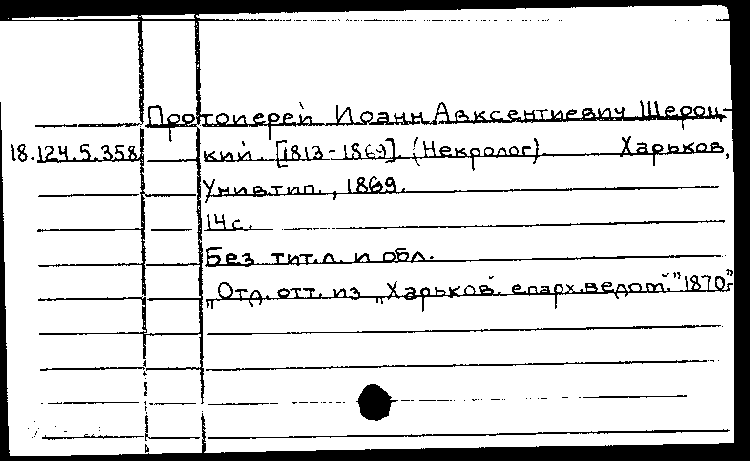 Протоиерей Иоанн Авксентиевич Шероц-
18.124.5.358 кий. [1813-1869]. (Некролог). Харьков,
Унив.тип., 1869.
14 с.
Без тит.л. и обл.
„Отд. отт. из „Харьков. епарх.ведом." 1870"